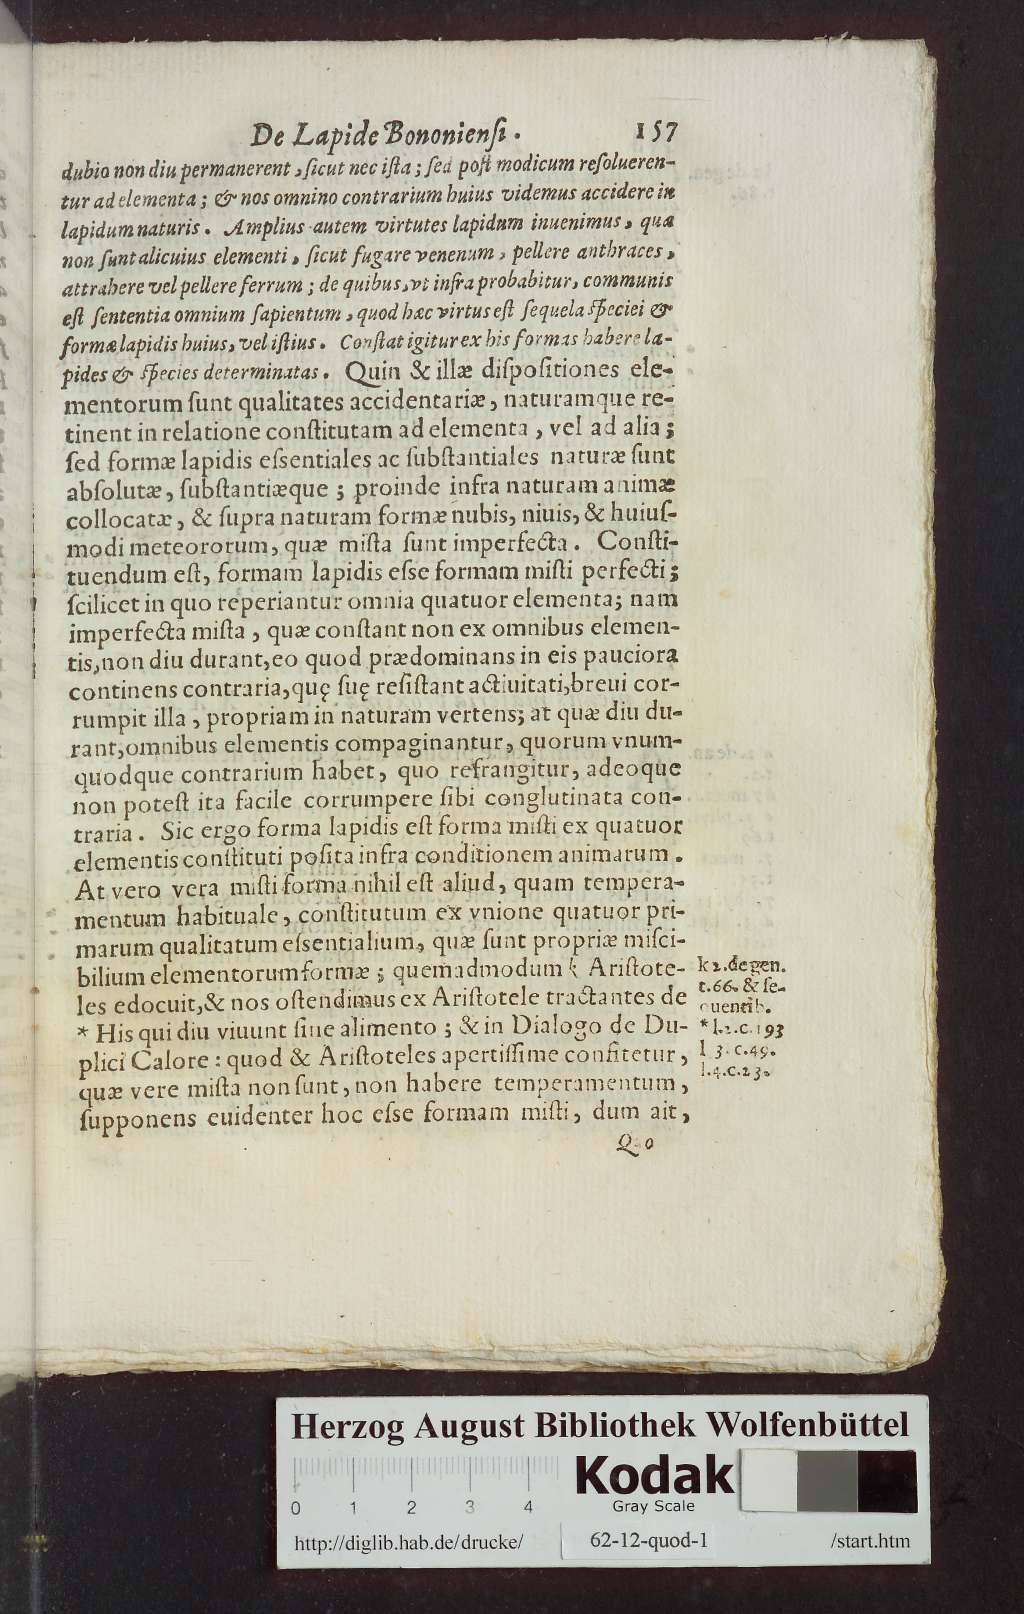 De Lapide Bononienſi. 157
dubio non diu permanerent, ſicut nec iſta; ſed poſt modicum reſolueren-
tur ad elementa; & nos omnino contrarium huius videmus accidere in
lapidum naturis. Amplius autem virtutes lapidum inuenimus, quæ
non ſunt alicuius elementi, ſicut fugare venenum, pellere anthraces,
attrahere vel pellere ferrum; de quibus, vt infra probabitur, communis
eſt ſententia omnium ſapientum, quod hæc virtus eſt ſequela ſpeciei &
formæ lapidis huius, vel iſtius. Conſtat igitur ex his formas habere la-
pides & ſpecies determinatas. Quin & illæ diſpoſitiones ele-
mentorum ſunt qualitates accidentariæ, naturamque re-
tinent in relatione conſtitutam ad elementa, vel ad alia;
ſed formæ lapidis eſsentiales ac ſubſtantiales naturæ ſunt
abſolutæ, ſubſtantiæque; proinde infra naturam animæ
collocatæ, & ſupra naturam formæ nubis, niuis, & huiuſ-
modi meteororum, quæ miſta ſunt imperfecta. Conſti-
tuendum eſt, formam lapidis eſse formam miſti perfecti;
ſcilicet in quo reperiantur omnia quatuor elementa; nam
imperfecta miſta, quæ conſtant non ex omnibus elemen-
tis, non diu durant, eo quod prædominans in eis pauciora
continens contraria, quę ſuę reſiſtant actiuitati, breui cor-
rumpit illa, propriam in naturam vertens; at quæ diu du-
rant, omnibus elementis compaginantur, quorum vnum-
quodque contrarium habet, quo refrangitur, adeoque
non poteſt ita facile corrumpere ſibi conglutinata con-
traria. Sic ergo forma lapidis eſt forma miſti ex quatuor
elementis conſtituti poſita infra conditionem animarum.
At vero vera miſti forma nihil eſt aliud, quam tempera-
mentum habituale, conſtitutum ex vnione quatuor pri-
marum qualitatum eſsentialium, quæ ſunt propriæ miſci-
bilium elementorum formæ; quemadmodum k Ariſtote-
les edocuit, & nos oſtendimus ex Ariſtotele tractantes de
* His qui diu viuunt ſine alimento; & in Dialogo de Du-
plici Calore: quod & Ariſtoteles apertiſſime confitetur,
quæ vere miſta non ſunt, non habere temperamentum,
ſupponens euidenter hoc eſse formam miſti, dum ait,
Q-o
k 2. de gen.
t. 66. & ſe-
quentib.
* l. 2. c. 193
l 3. c. 49.
l. 4. c. 23.
Herzog August Bibliothek Wolfenbüttel
Kodak
Gray Scale
0 1 2 3 4
http://diglib.hab.de/drucke/ 62-12-quod-1 /start.htm